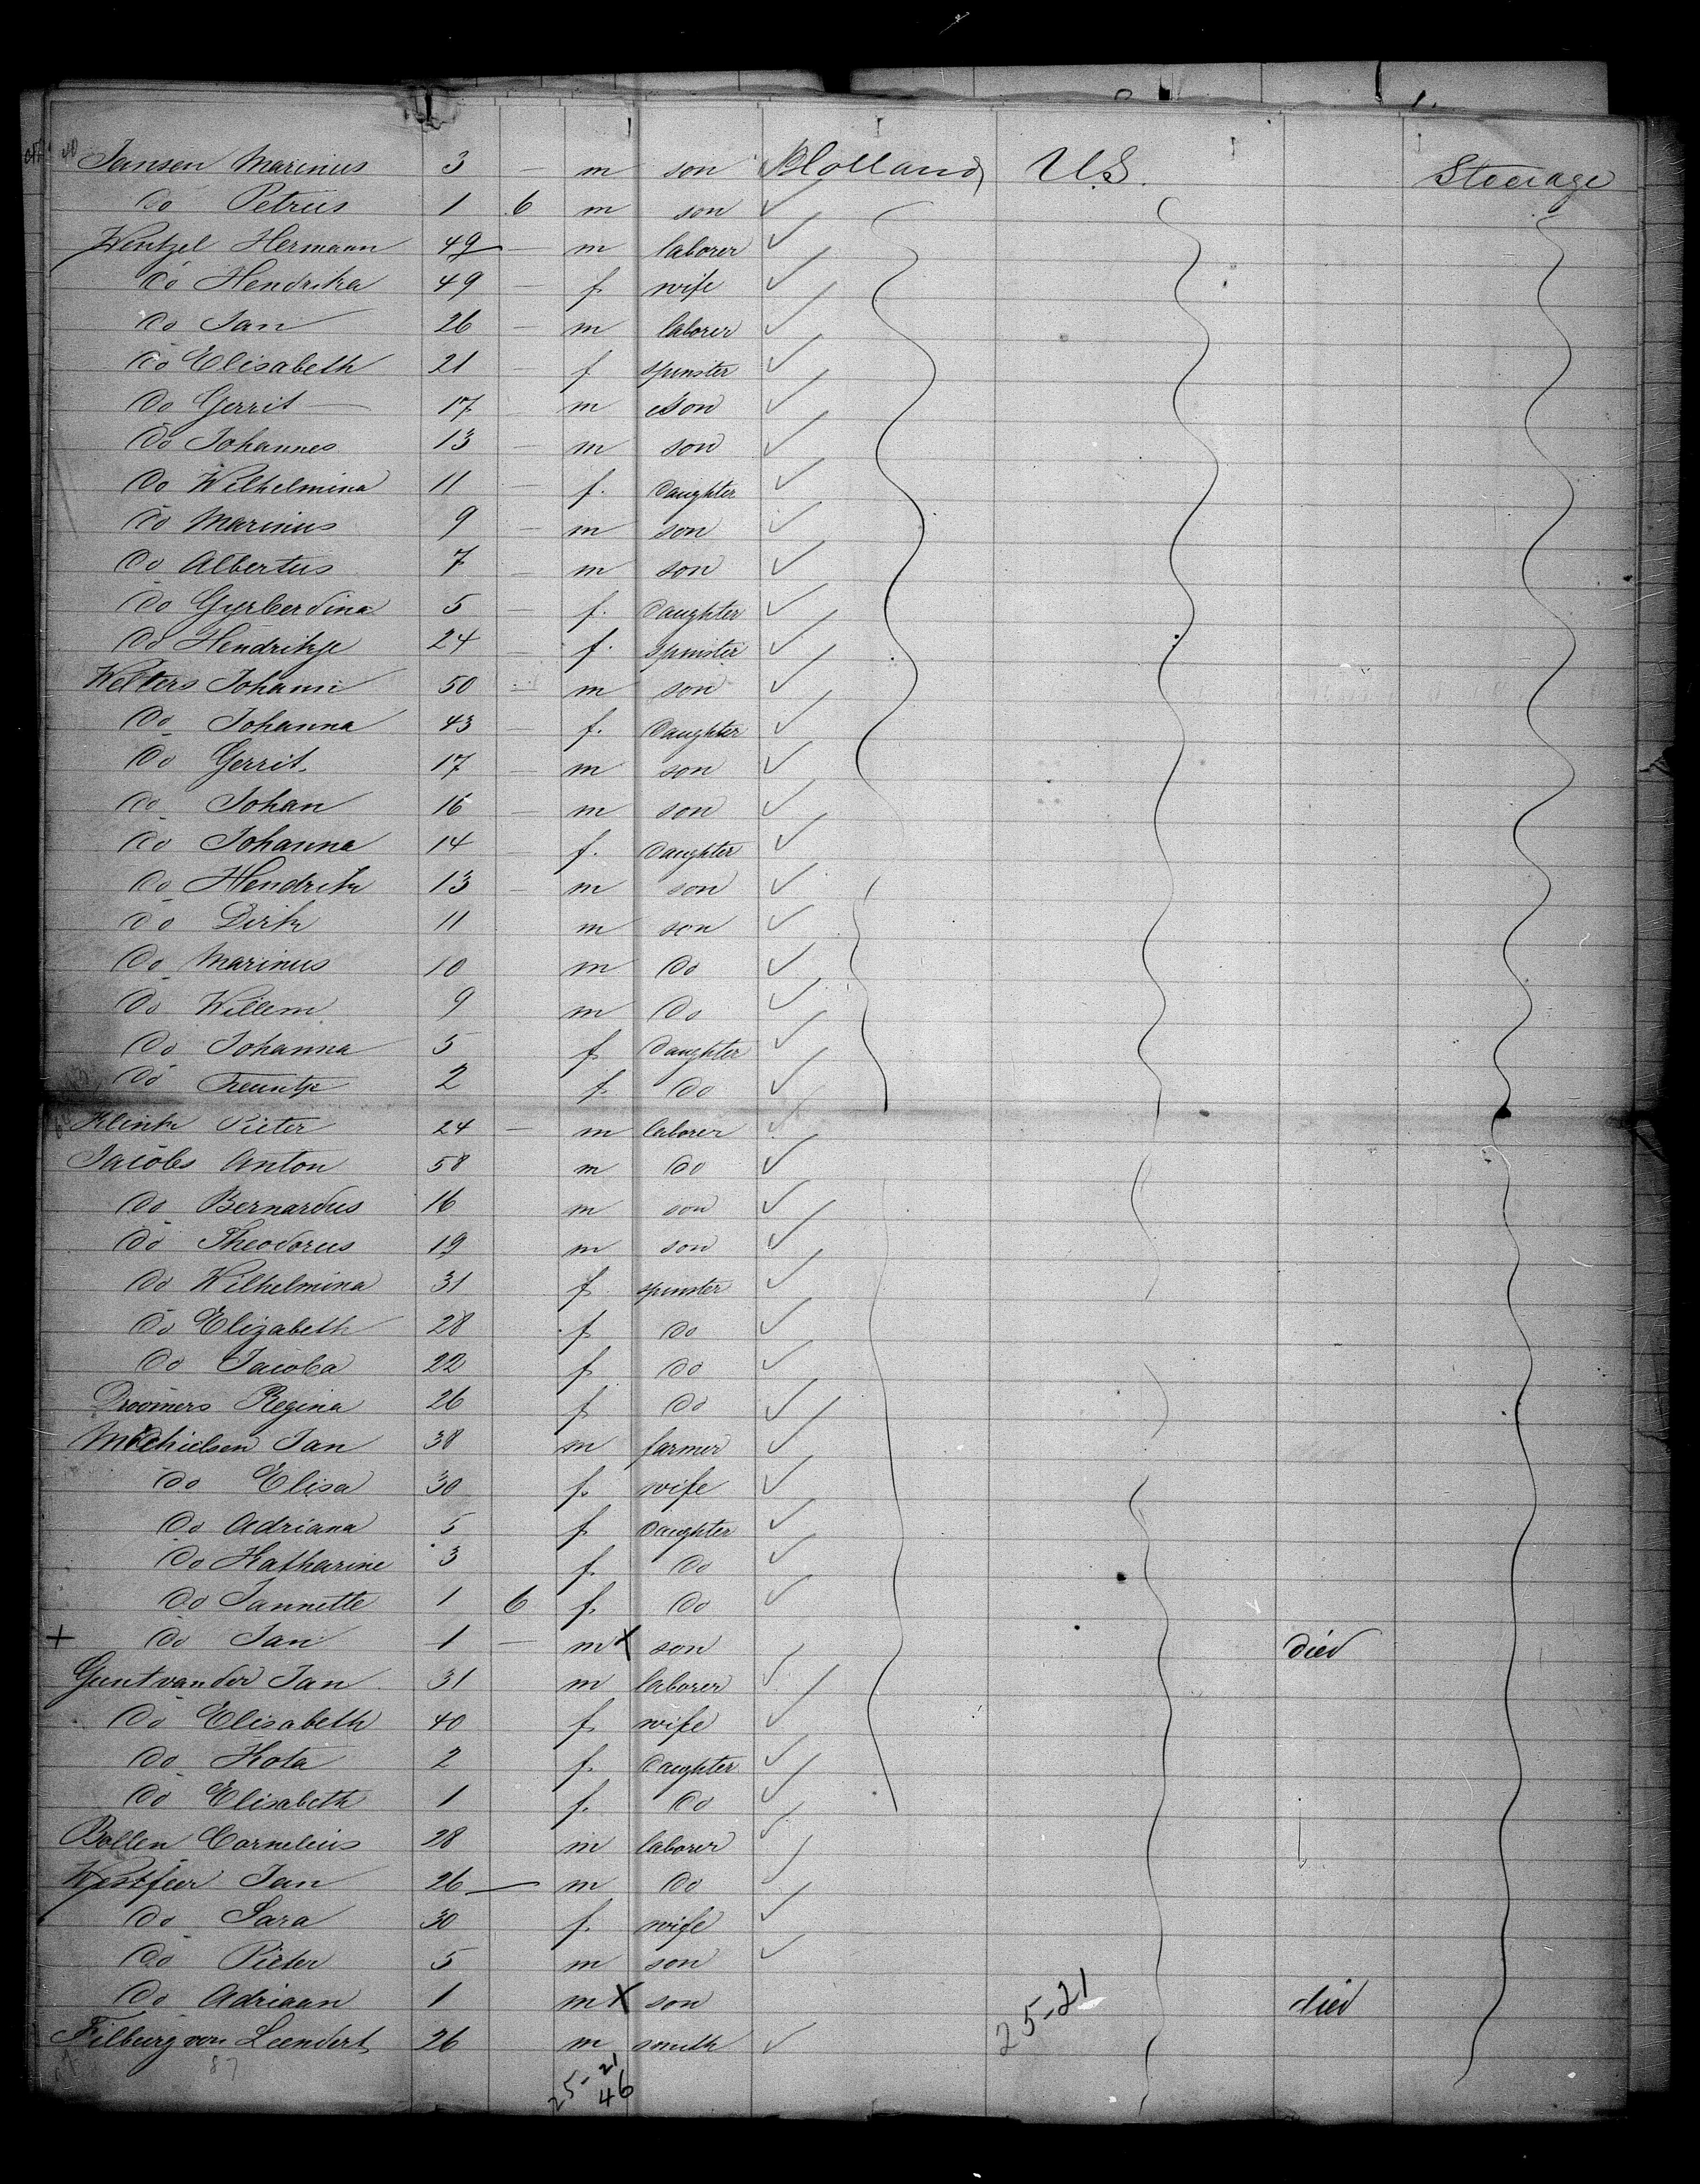 Jansen Marinus 3 — m son Holland U.S. Steerage
do Petrus 1 6 m son
Wentzel Hermann 49 — m laborer
do Hendrika 49 — f. wife
do Jan 26 — m laborer
do Elisabeth 21 — f spinster
do Gerrit — 17 m son
do Johannes 13 — m son
do Wilhelmina 11 — f. daughter
do Marinus 9 — m son
do Albertus 7 — m son
do Gysberdina 5 — f. daughter
do Hendrikje 24 — f. spinster
Welters Johann 50 — m son
do Johanna 43 — f. daughter
do Gerrit 17 — m son
do Johan 16 — m son
do Johanna 14 — f. daughter
do Hendrik 13 — m son
do Dirk 11 m son
do Marinus 10 m do
do Willem 9 m do
do Johanna 5 f daughter
do Teuntje 2 f. do
Klink Pieter 24 — m laborer
Jacobs Anton 58 m do
do Bernardus 16 m son
do Theodorus 19 m son
do Wilhelmina 31 f. spinster
do Elizabeth 28 f do
do Jacoba 22 f do
Droomers Regina 26 f do
Michielsen Jan 38 m farmer
do Elisa 30 f. wife
do Adriana 5 f daughter
do Katharine 3 f. do
do Jannette 1 6 f. do
+ do Jan 1 — m x son died
Guntvander Jan 31 m laborer
do Elisabeth 40 f. wife
do Kota 2 f. daughter
do Elisabeth 1 f. do
Bollen Cornelius 28 m laborer
Westfeer Jan 26 — m do
do Sara 30 f. wife
do Pieter 5 m son
do Adriaan 1 m x son 25-21 died
Filburg von Leendert 26 m smith
87 25-21
46